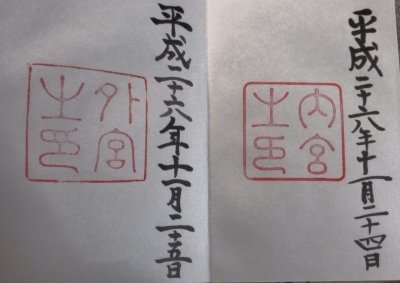 平成二十六年十一月二十四日
内宮
之印
平成二十六年十一月二十五日
外宮
之印